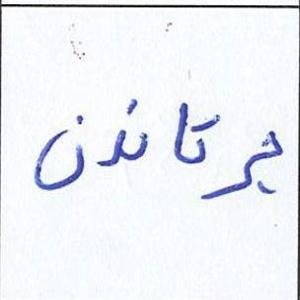 برتاندن